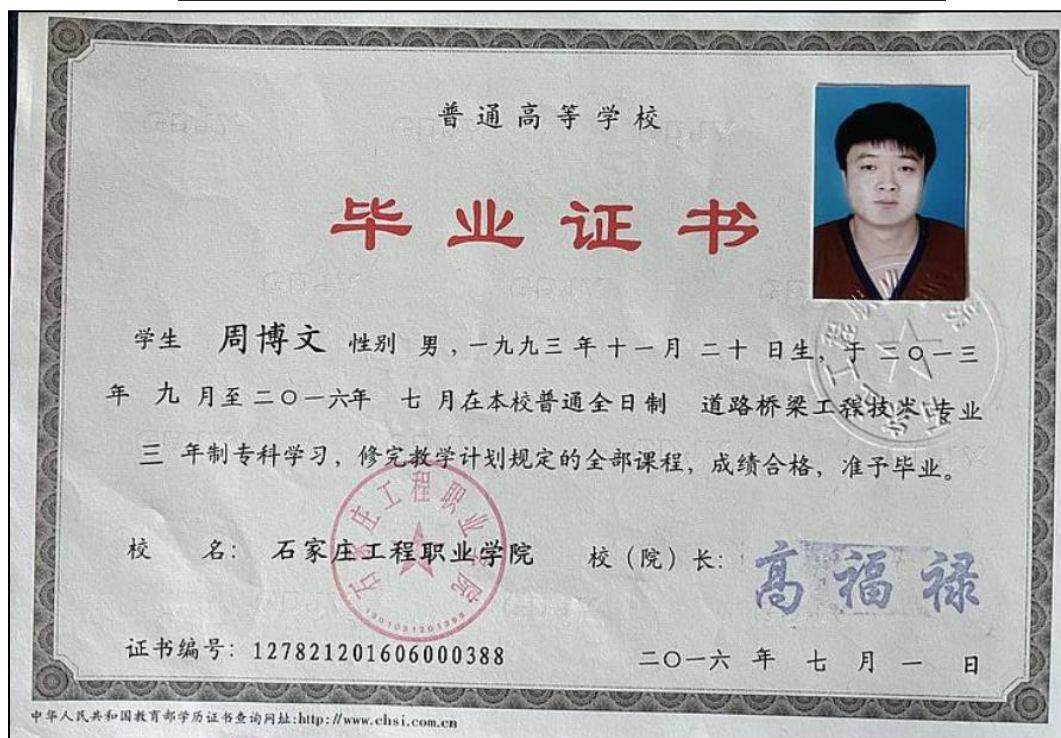 普通高等学校
毕业证书
学生 周博文 性别 男，一九九三年十一月二十日生，于二〇一三
年 九 月至二〇一六年 七 月在本校普通全日制 道路桥梁工程技术 专业
三 年制专科学习，修完教学计划规定的全部课程，成绩合格，准予毕业。
校 名： 石家庄工程职业学院 校（院）长： 高福禄
石家庄工程职业学院
证书编号：127821201606000388 二〇一六年 七 月 一 日
中华人民共和国教育部学历证书查询网址:http://www.chsi.com.cn